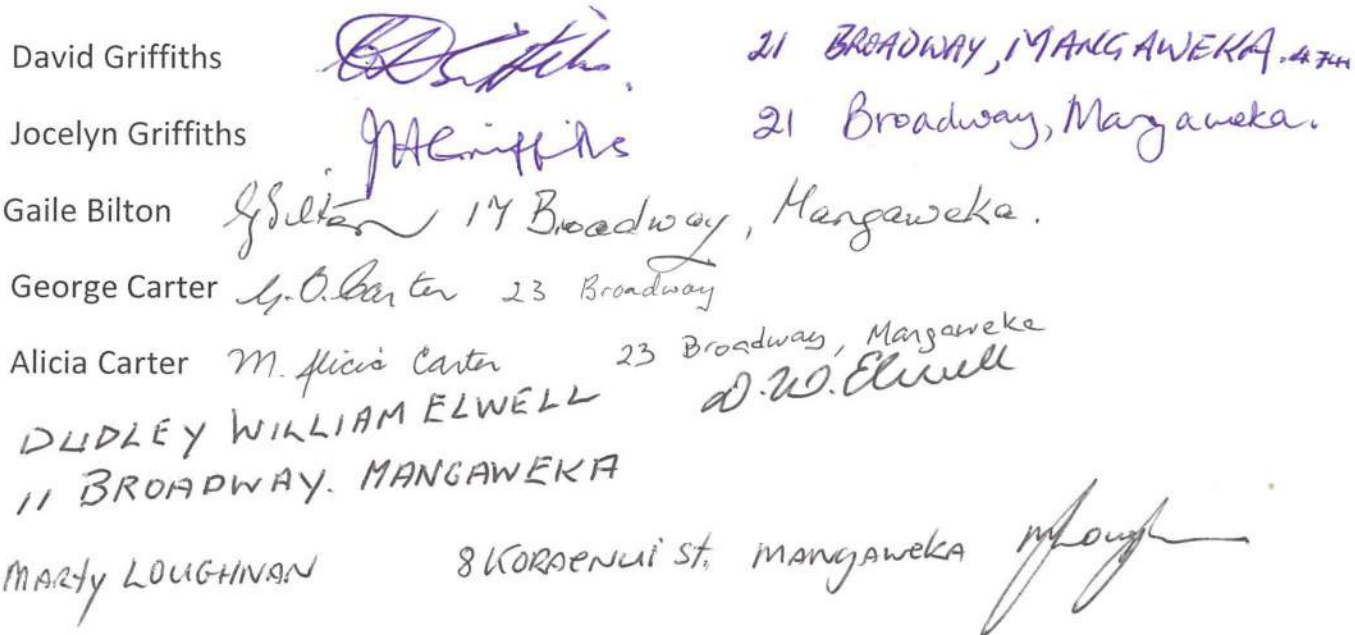 David Griffiths 21 BROADWAY, MANGAWEKA. 4746
Jocelyn Griffiths JHGriffiths 21 Broadway, Mangaweka.
Gaile Bilton GBilton 17 Broadway, Mangaweka.
George Carter G.O. Carter 23 Broadway
Alicia Carter M. Alicia Carter 23 Broadway, Mangaweka
DUDLEY WILLIAM ELWELL D.W. Elwell
11 BROADWAY. MANGAWEKA
MARTY LOUGHNAN 8 KORAENUI St, MANGAWEKA